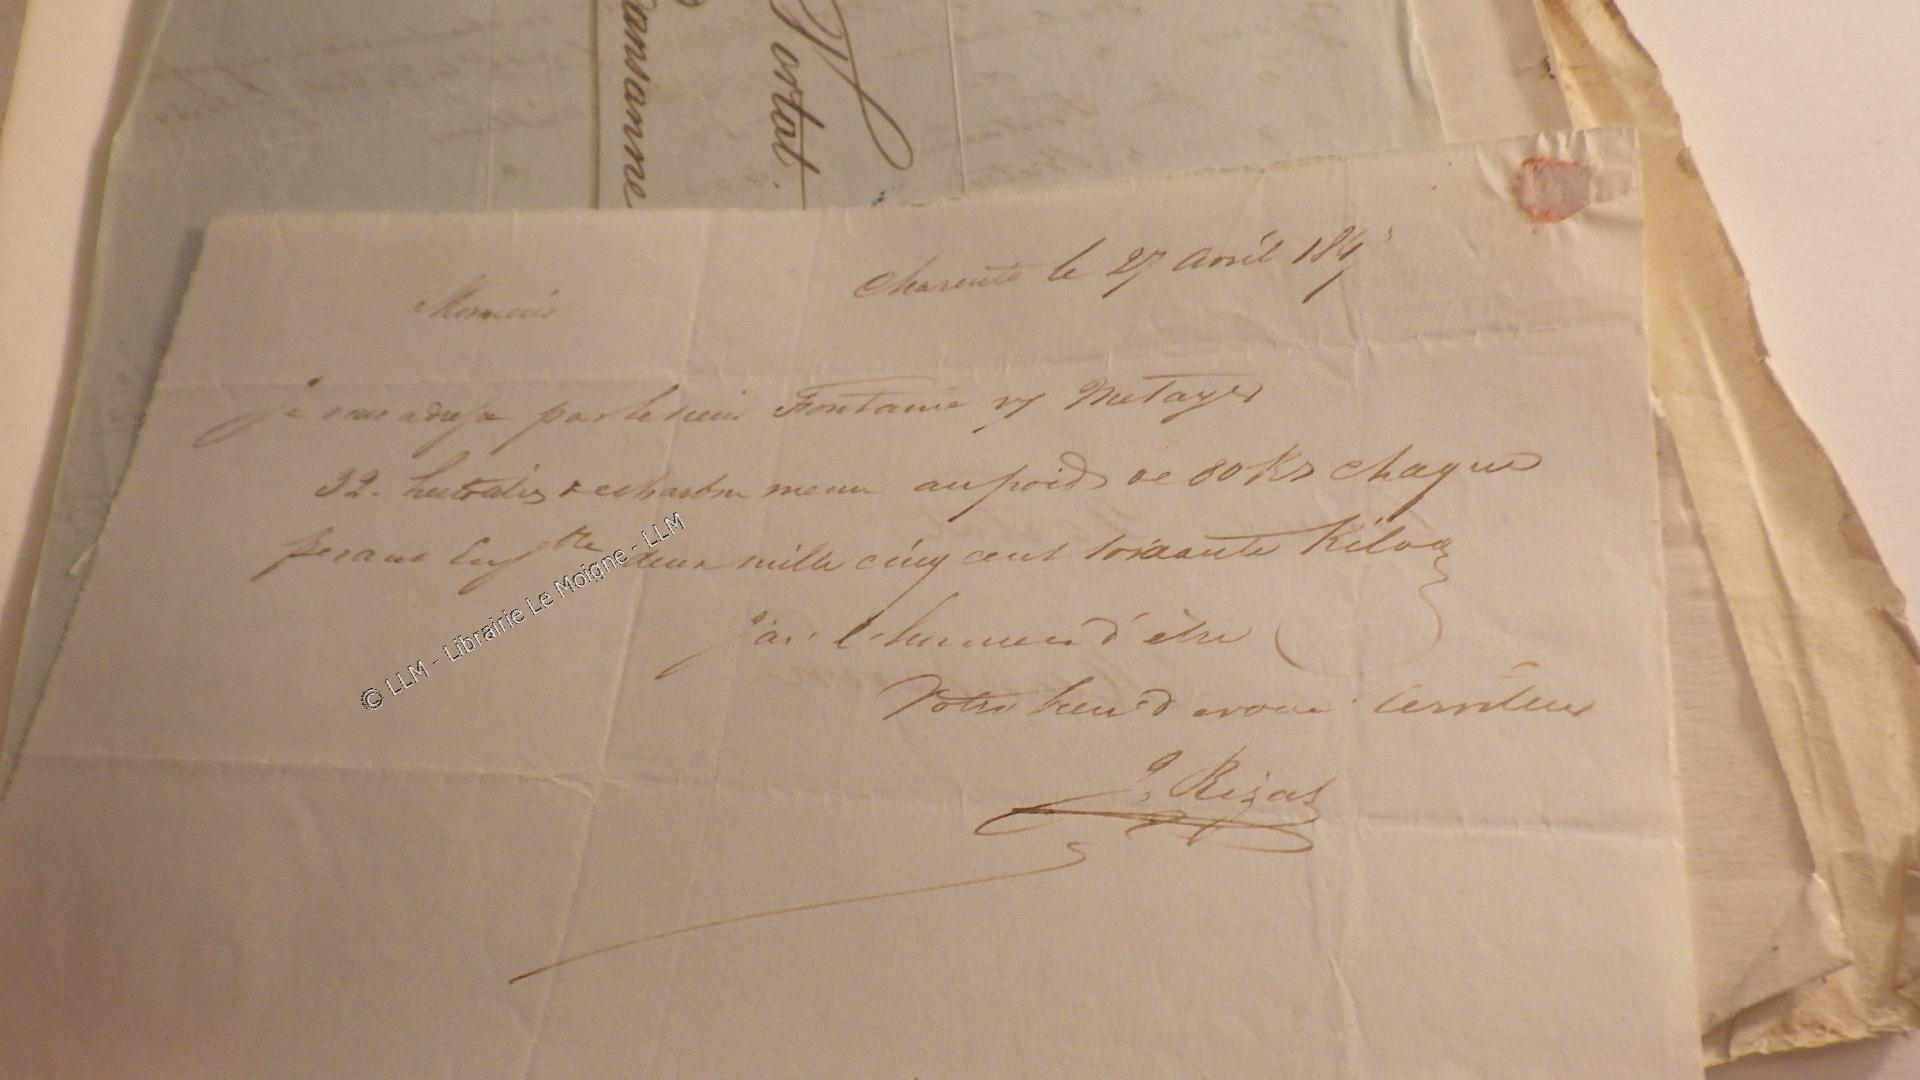 Portat.
Dansanne
Charente le 27 avril 184
Monsieur
je vous adresse par le sieur Fontaine & Metayer
32. hectolitres de charbon menu au poids de 80 Ks chaque
pesant Ensble deux mille cinq cent soixante Kilog
j'ai l'honneur d'être
Votre bien dévoué serviteur
© LLM - Librairie Le Moigne - LLM